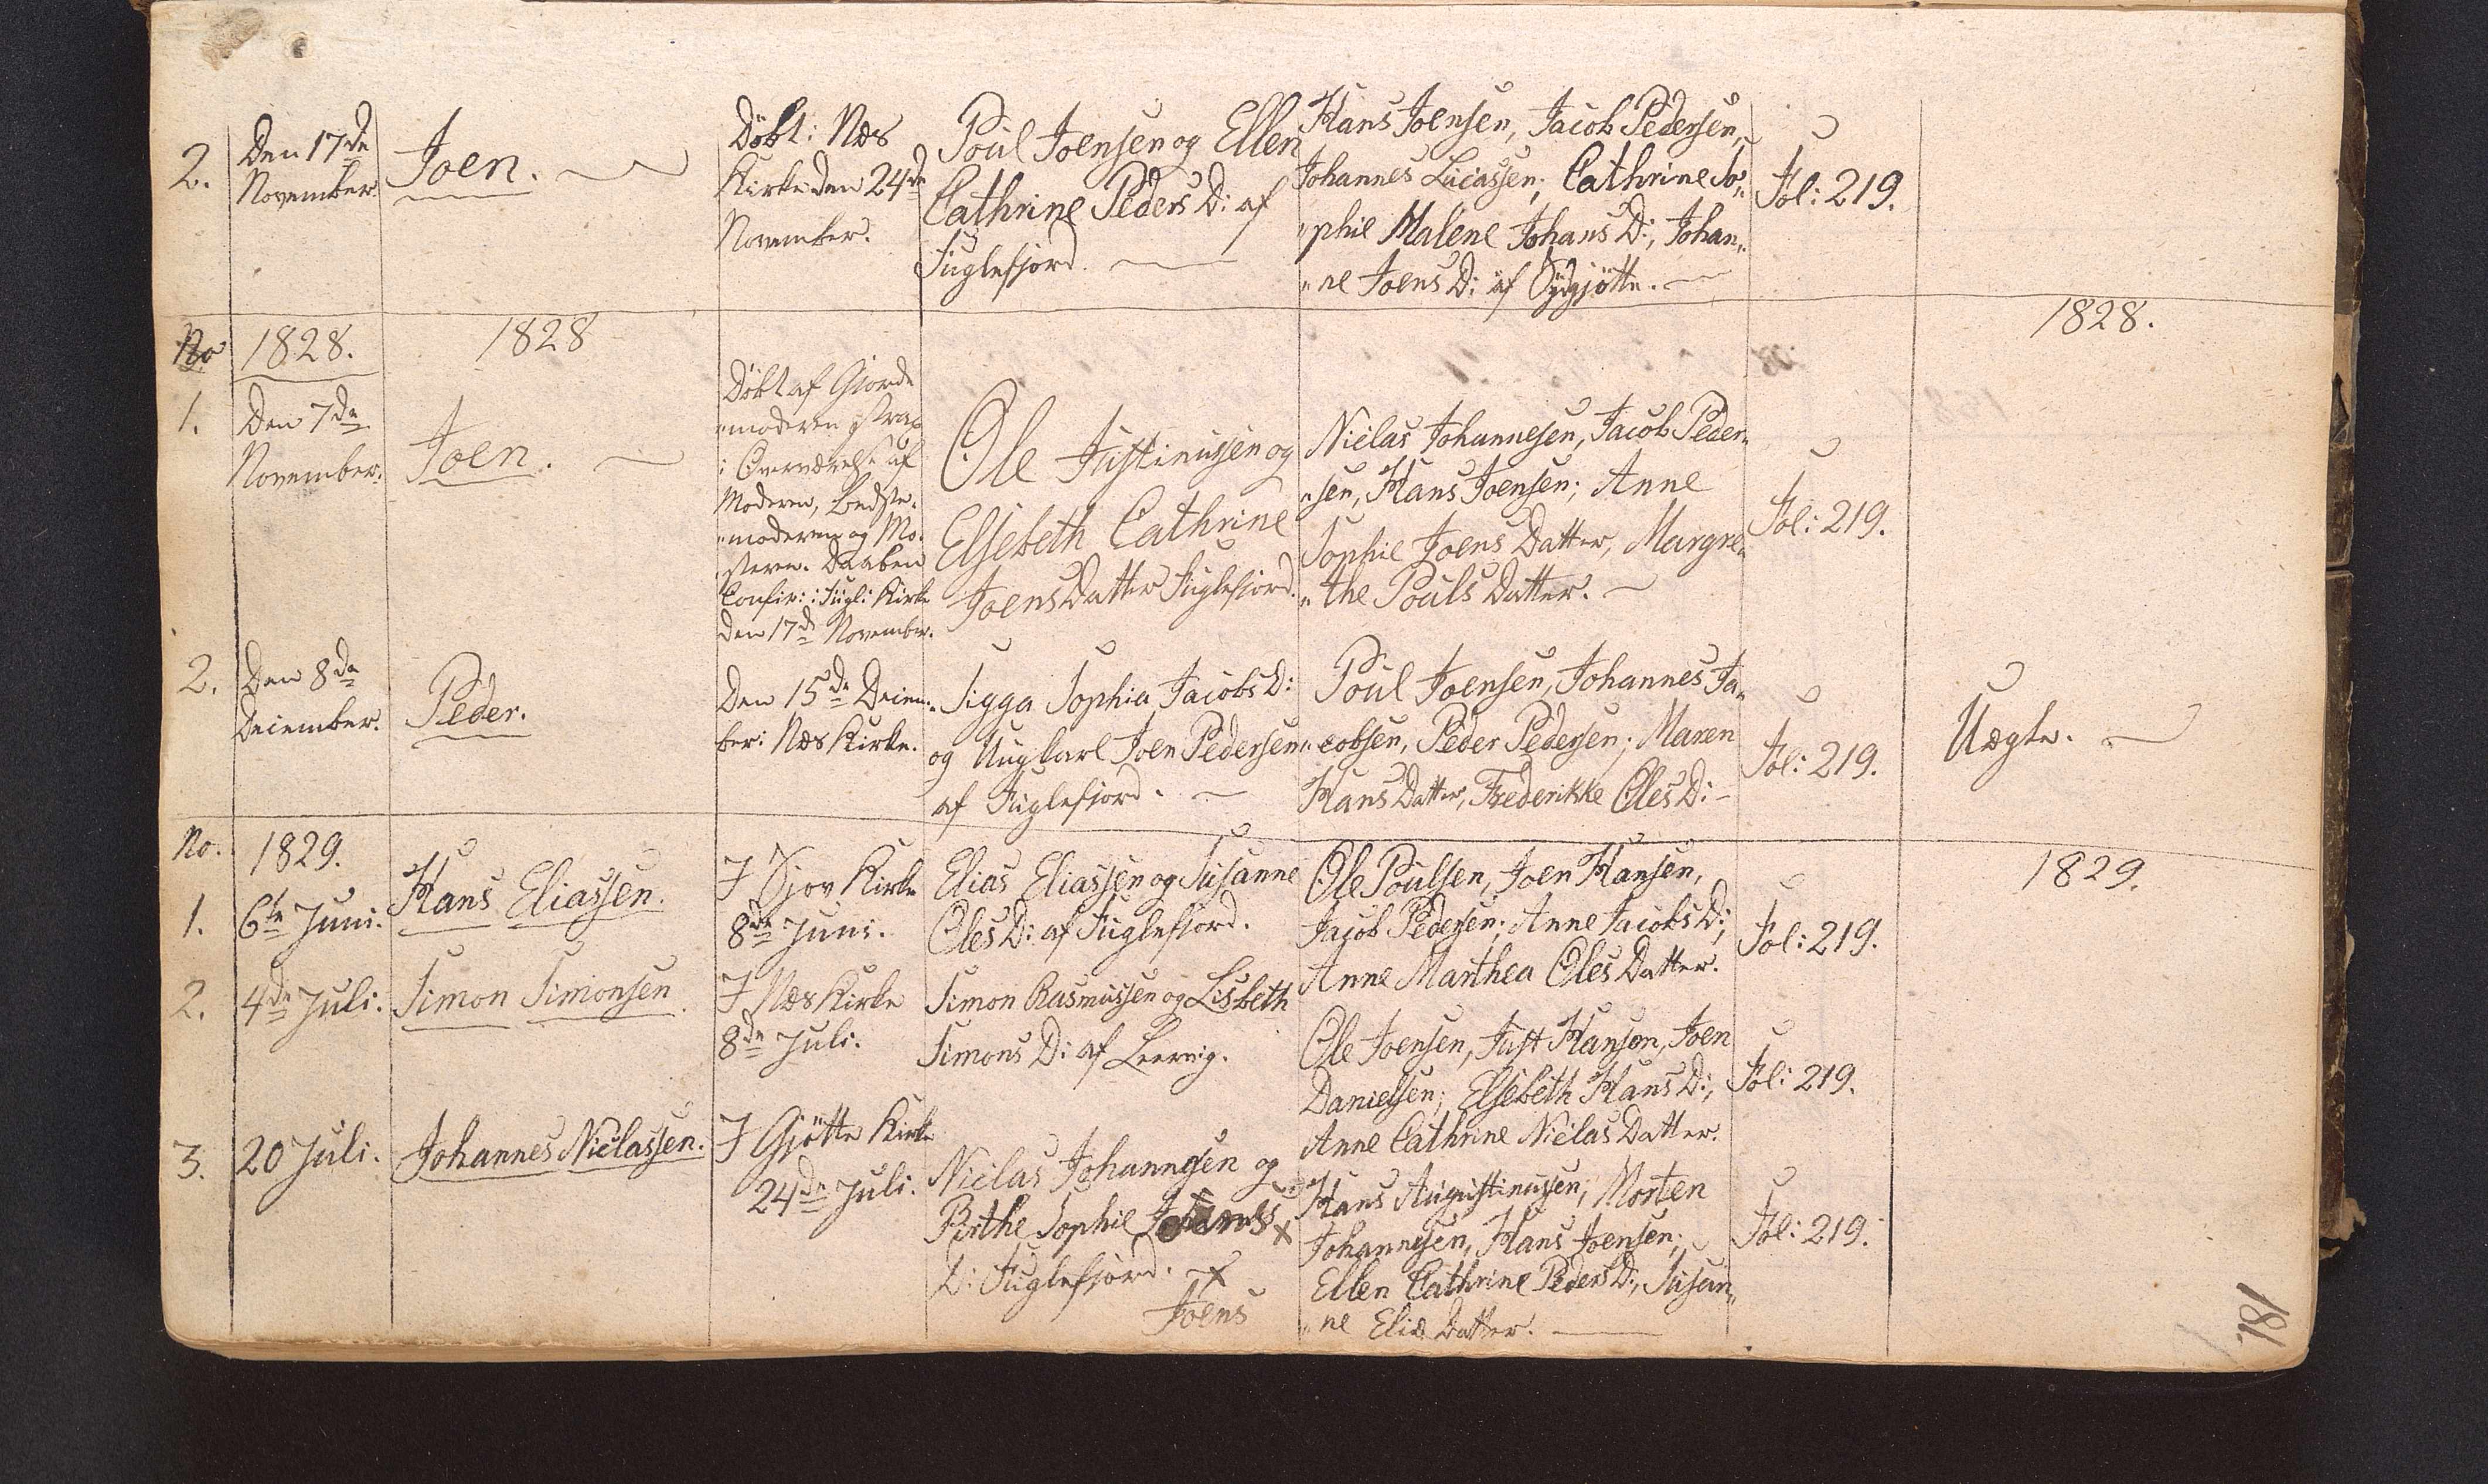 2.
Den 17de
November.
Joen.
Döbt i Næs
Kirke den 24de
November.
Poul Joensen og Ellen
Cathrine Peders D: af
Fuglefjord.
Hans Joensen, Jacob Pedersen,
Johannes Lucassen; Cathrine So„
„phie Malene Johans D:, Johan„
„ne Joens D: af Sydgjötte.
Fol: 219.
No
1828.
1828
1828.
1.
Den 7de
November.
Joen.
Döbt af Giorde
„moderen strax
i Overværelse af
Moderen, Bedste„
„moderen og Mo„
steren. Daaben
Confir: i Fugl: Kirke
den 17de November.
Ole Justinussen og
Elsebeth Cathrine
Joens Datter Fuglefjord.
Niclas Johannesen, Jacob Peder„
„sen, Hans Joensen; Anne
Sophie Joens Datter, Margre„
„the Pouls Datter.
Fol: 219.
2.
Den 8de
December.
Peder.
Den 15de Decem„
ber i Næs Kirke.
Sigga Sophia Jacobs D:
og Ungkarl Joen Pedersen
af Fuglefjord.
Poul Joensen, Johannes Ja„
„cobsen, Peder Pedersen; Maren
Hans Datter, Frederikke Oles D:
Fol: 219.
Uægte.
No.
1829.
1829.
1.
6te Juni.
Hans Eliassen.
I Sjov Kirke
8de Juni.
Elias Eliassen og Susanne
Oles D: af Fuglefjord.
Ole Poulsen, Joen Hansen,
Jacob Pedersen; Anne Jacobs D:,
Anne Marthea Oles Datter.
Fol: 219.
2.
4de Juli.
Simon Simonsen.
I Næs Kirke
8de Juli.
Simon Rasmussen og Lisbeth
Simons D: af Leervig.
Ole Joensen, Just Hansen, Joen
Danielsen; Elsebeth Hans D:,
Anne Cathrine Niclas Datter.
Fol: 219.
3.
20 Juli.
Johannes Niclassen.
I Gjötte Kirke
24de Juli.
Niclas Johannesen og
Birthe Sophie
D: Fuglefjord.
Joens
Hans Augustinussen, Morten
Johannesen, Hans Joensen;
Ellen Cathrine Peders D:, Susan„
„ne Eliæ Datter.
Fol: 219.
181.